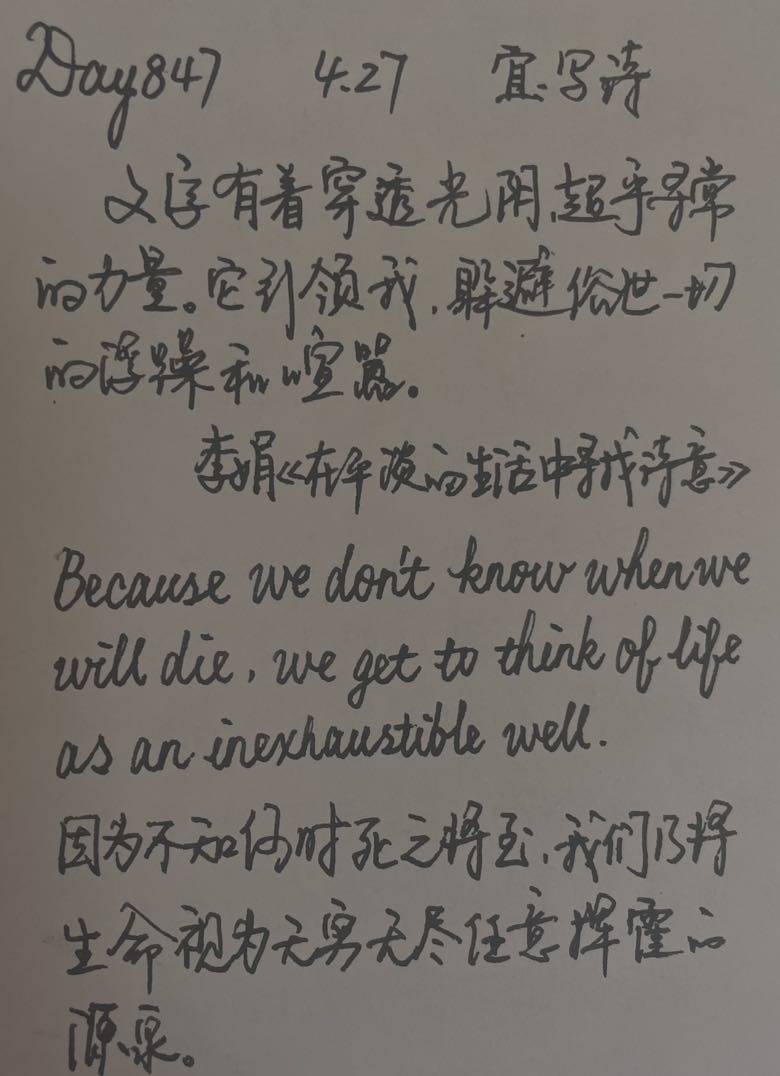 Day847 4.27 宜写诗
文字有着穿透光阴,超乎寻常
的力量。它引领我,躲避俗世一切
的浮躁和喧嚣。
李娟《在平淡的生活中寻找诗意》
Because we don't know when we
will die, we get to think of life
as an inexhaustible well.
因为不知何时死之将至,我们乃将
生命视为无穷无尽任意挥霍的
源泉。